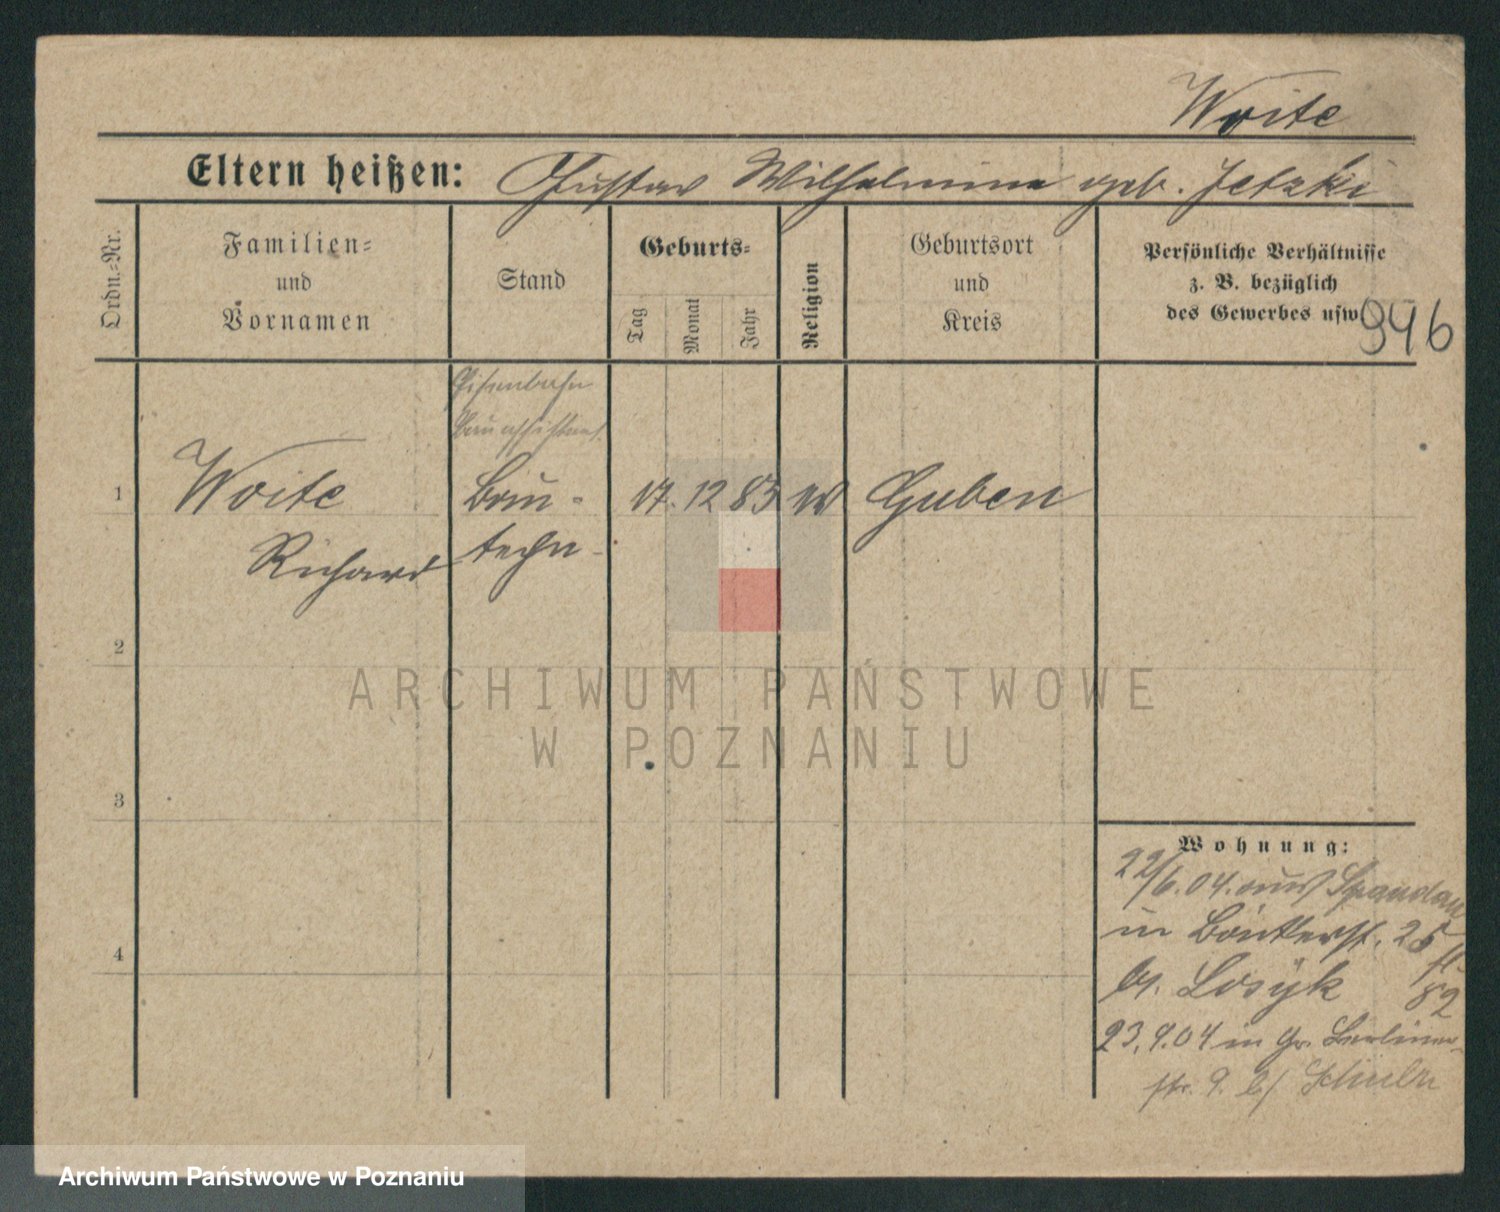 Woite
Eltern heißen: Gustav Wilhelmine geb. Jetzki
Ordn.=Nr.
Familien=
und
Vornamen
Stand
Geburts=
Tag
Monat
Jahr
Religion
Geburtsort
und
Kreis
Persönliche Verhältnisse
z. B. bezüglich
des Gewerbes usw
946
Eisenbahn
Bauassistent
1
Woite
Bau-
17. 12 83
Guben
Richard
techn
2
ARCHIWUM PAŃSTWOWE
W POZNANIU
3
Wohnung:
22/6.04. aus Spandau
in 25
4
b/. Losyk 82
23.9.04 in Gr. Berliner-
str. 9. b/ Schulz
Archiwum Państwowe w Poznaniu